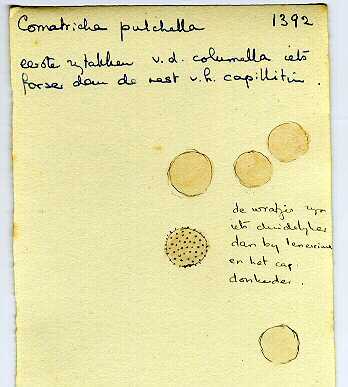 Comatricha pulchella 1392
eerste zytakken v.d. columella iets
forser dan de rest v.h. capillitium.
de wratjes zyn
iets duidelyker
dan by tenerrima
en het cap.
donkerder.